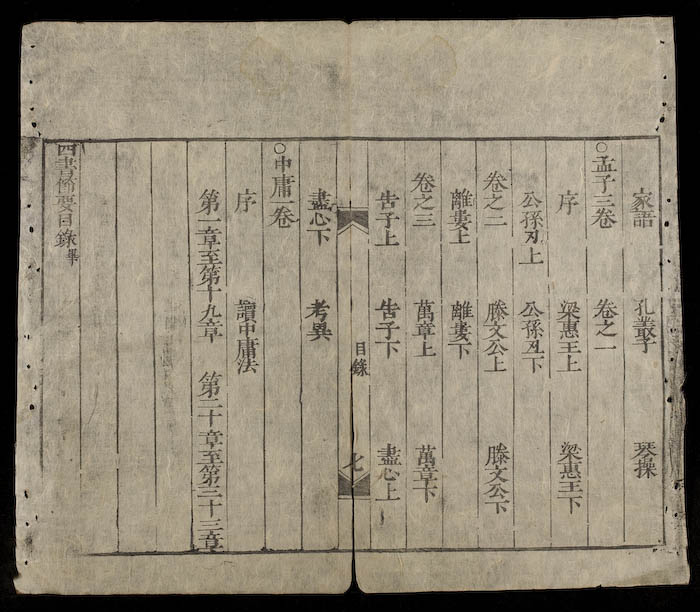 家語 孔叢子 琴操
○孟子三卷 卷之一
序 梁惠王上 梁惠王下
公孫丑上 公孫丑下
卷之二 滕文公上 滕文公下
離婁上 離婁下
卷之三 萬章上 萬章下
告子上 告子下 盡心上
目錄 七
盡心下 考異
○中庸一卷
序 讀中庸法
第一章至第十九章 第二十章至第三十三章
四書備要目錄畢